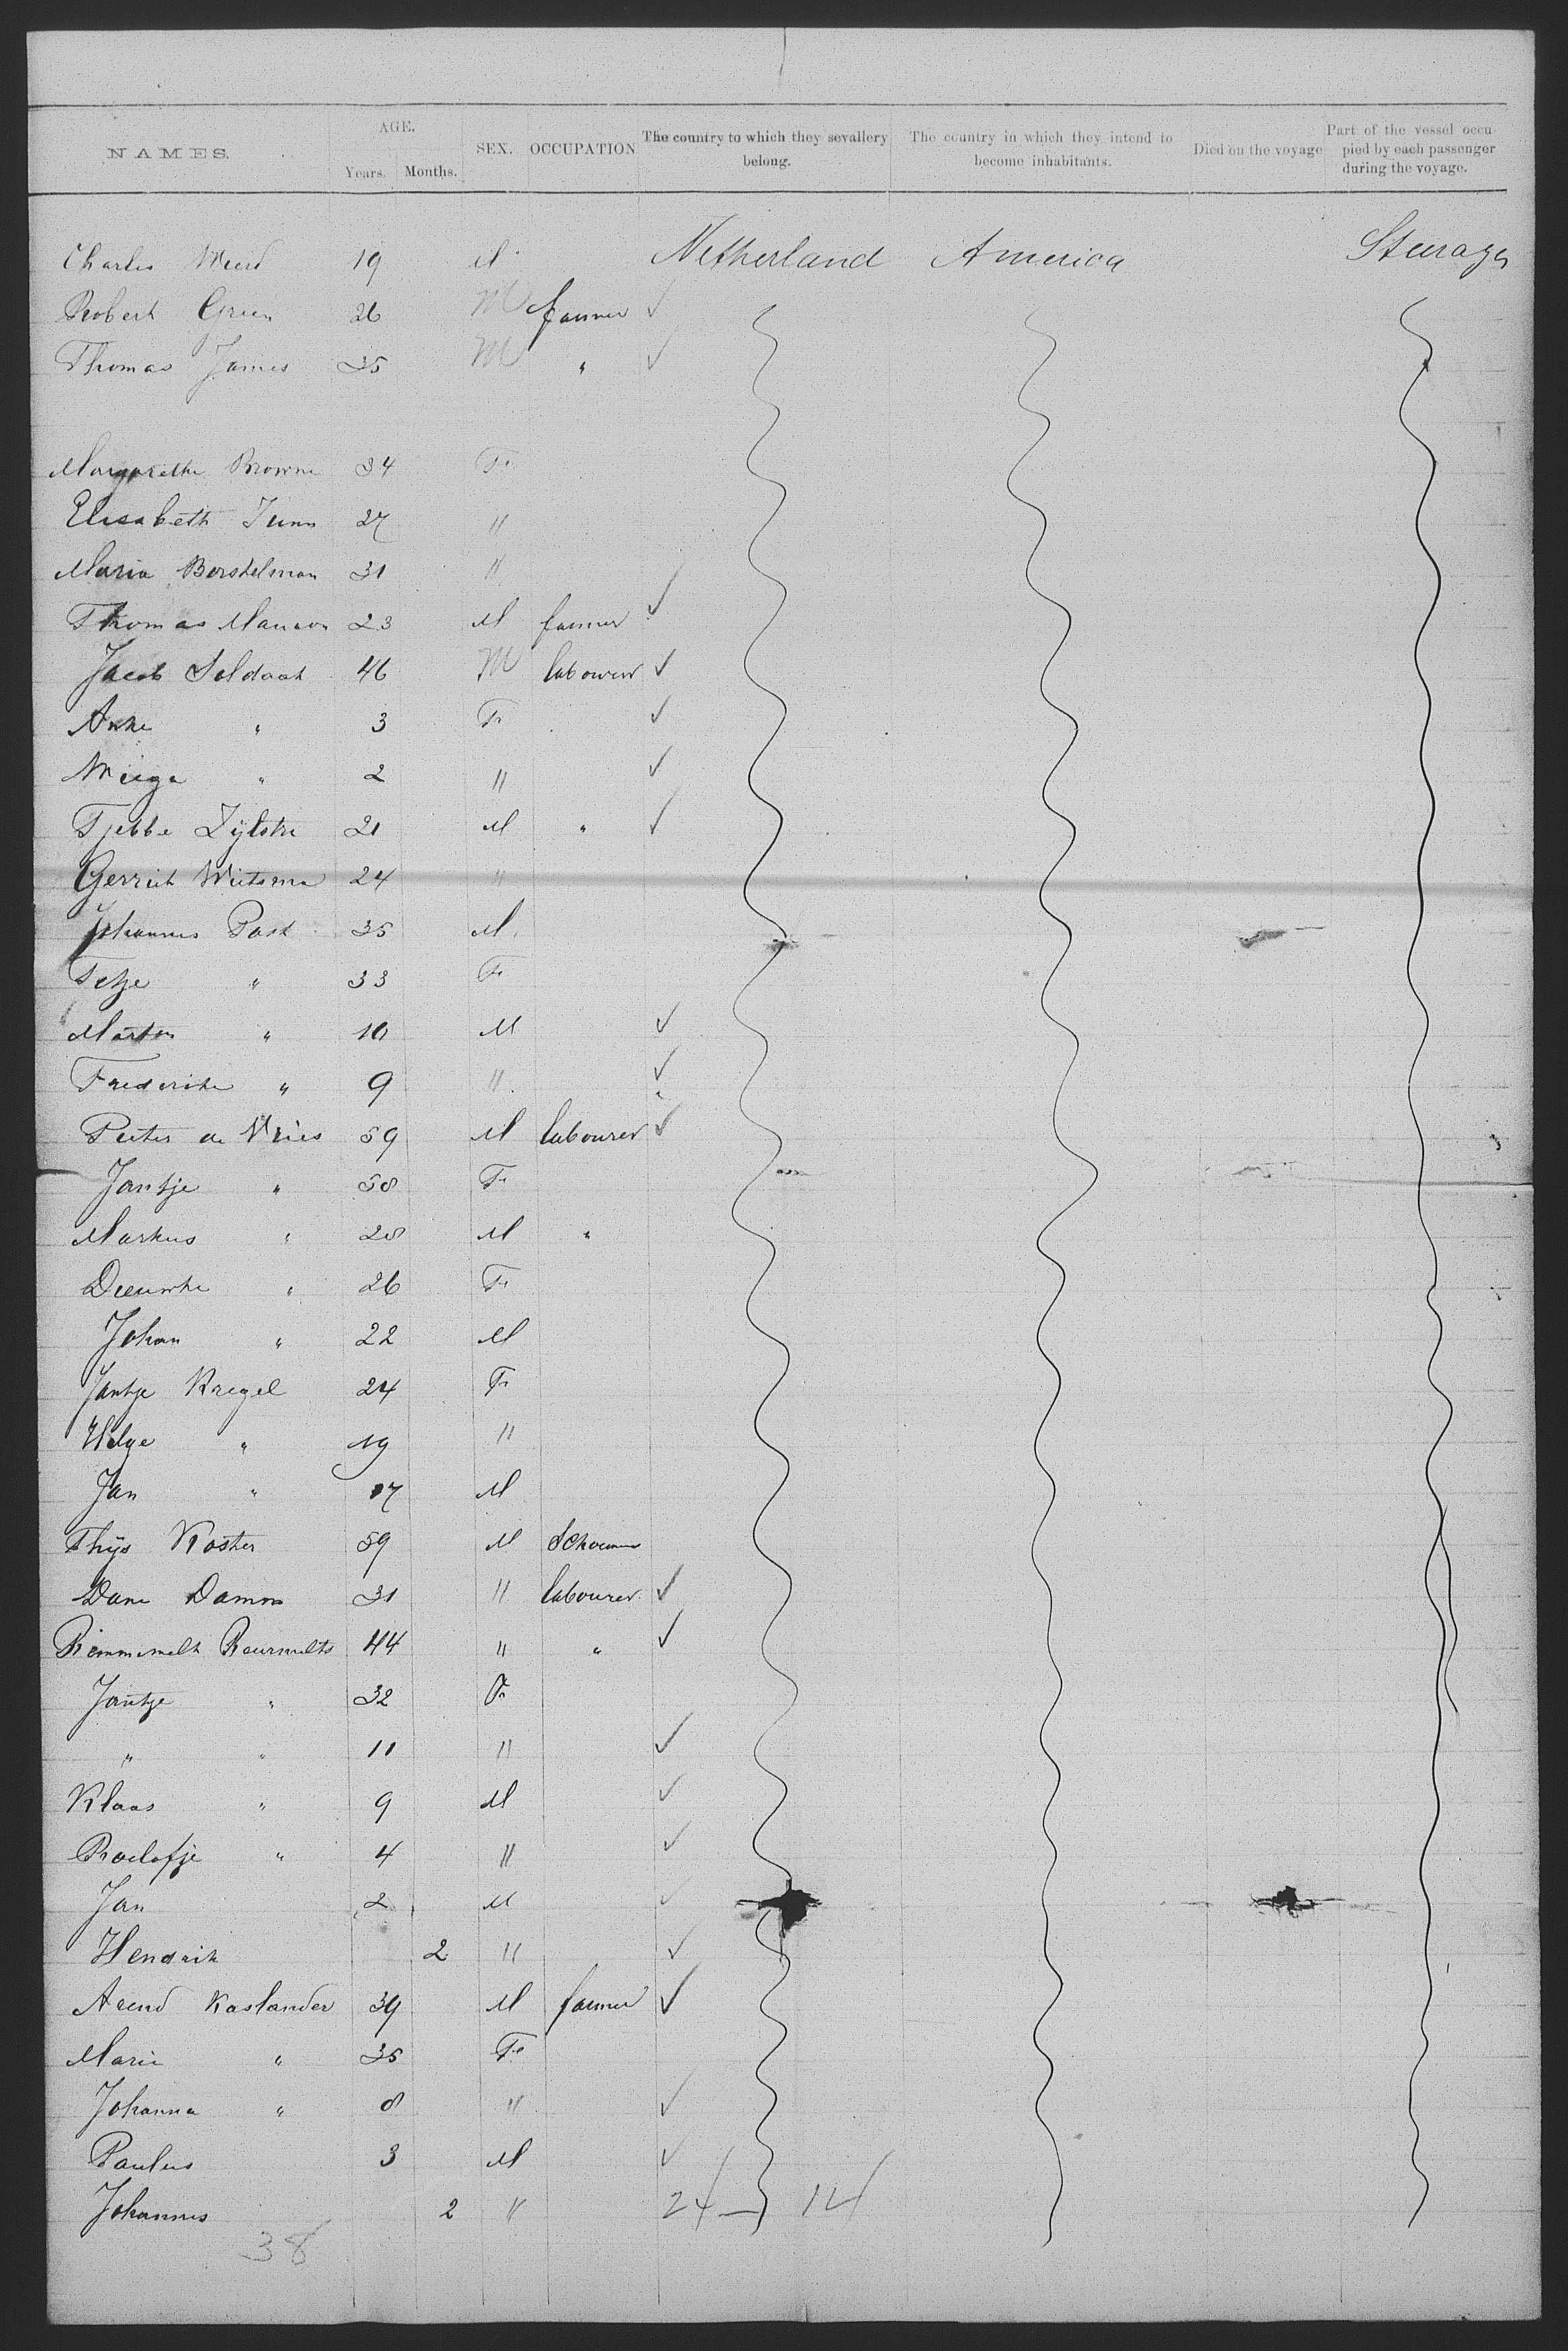 NAMES. AGE. SEX. OCCUPATION The country to which they sevallery belong. The country in which they intend to become inhabitants. Died on the voyage Part of the vessel occupied by each passenger during the voyage.
Years. Months.
Charles 19 M Netherland America Steerage
Robert Green 26 M farmer ✓
Thomas James 35 M " ✓
Margarethe Browne 34 F
Elisabeth 27 "
Maria Borstelman 31 "
Thomas 23 M farmer ✓
Jacob Soldaat 46 M labourer ✓
Anke " 3 F ✓
" 2 " ✓
Tjebbe Zijlstra 21 M " ✓
Gerrit Wietsma 24 "
Johannes Post 35 M
Tetje " 33 F
Marten " 10 M ✓
Frederike " 9 " ✓
Pieter de Vries 59 M labourer ✓
Jantje " 58 F
Markus " 28 M "
Dieuwke " 26 F
Johan " 22 M
Jantje Kregel 24 F
" 19 "
Jan " 17 M
Thijs Koster 59 M
Damon 31 " labourer ✓
44 " " ✓
Jantje " 32 F
" " 11 " ✓
Klaas " 9 M ✓
Roelofje " 4 " ✓
Jan 2 M ✓
Hendrik 2 " ✓
Arend Kaslander 39 M farmer ✓
Marie " 35 F
Johanna " 8 " ✓
Paulus 3 M ✓
Johannes 2 " 24 — 14
38